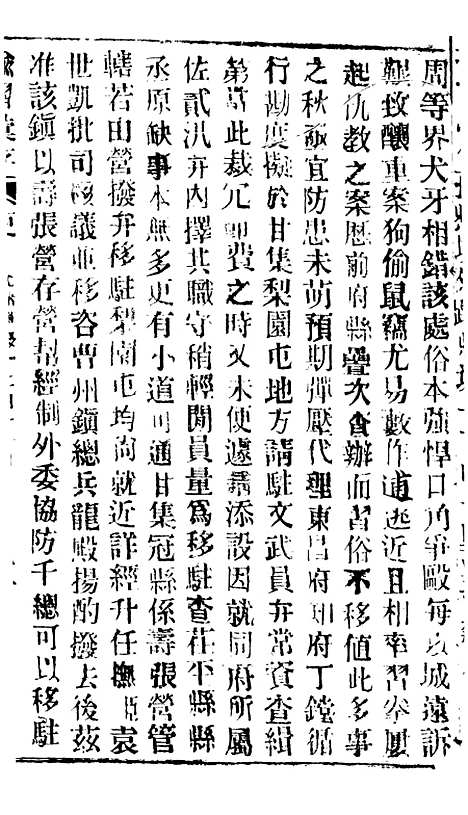 周等界犬牙相錯該處俗本強悍口角爭毆每以城遠訴
難致釀重案狗偷鼠竊尤易數作逋逃近且相率習拳屢
起仇教之案歷前府縣疊次查辦而習俗不移値此多事
之秋亟宜防患未萌預期彈壓代理東昌府知府丁鏜循
行勘度擬於甘集梨園屯地方請駐文武員弁常資查緝
第當此裁冗節費之時又未便遽請添設因就同府所屬
佐貳汛弁內擇其職守稍輕閒員量爲移駐查茌平縣縣
丞原缺事本無多更有小道可通甘集冠縣係壽張營管
轄若由營撥弁移駐梨園屯均尚就近詳經升任撫臣袁
世凱批司核議並移咨曹州鎭總兵龍殿揚酌撥去後茲
准該鎭以壽張營存營幇經制外委協防千總可以移駐